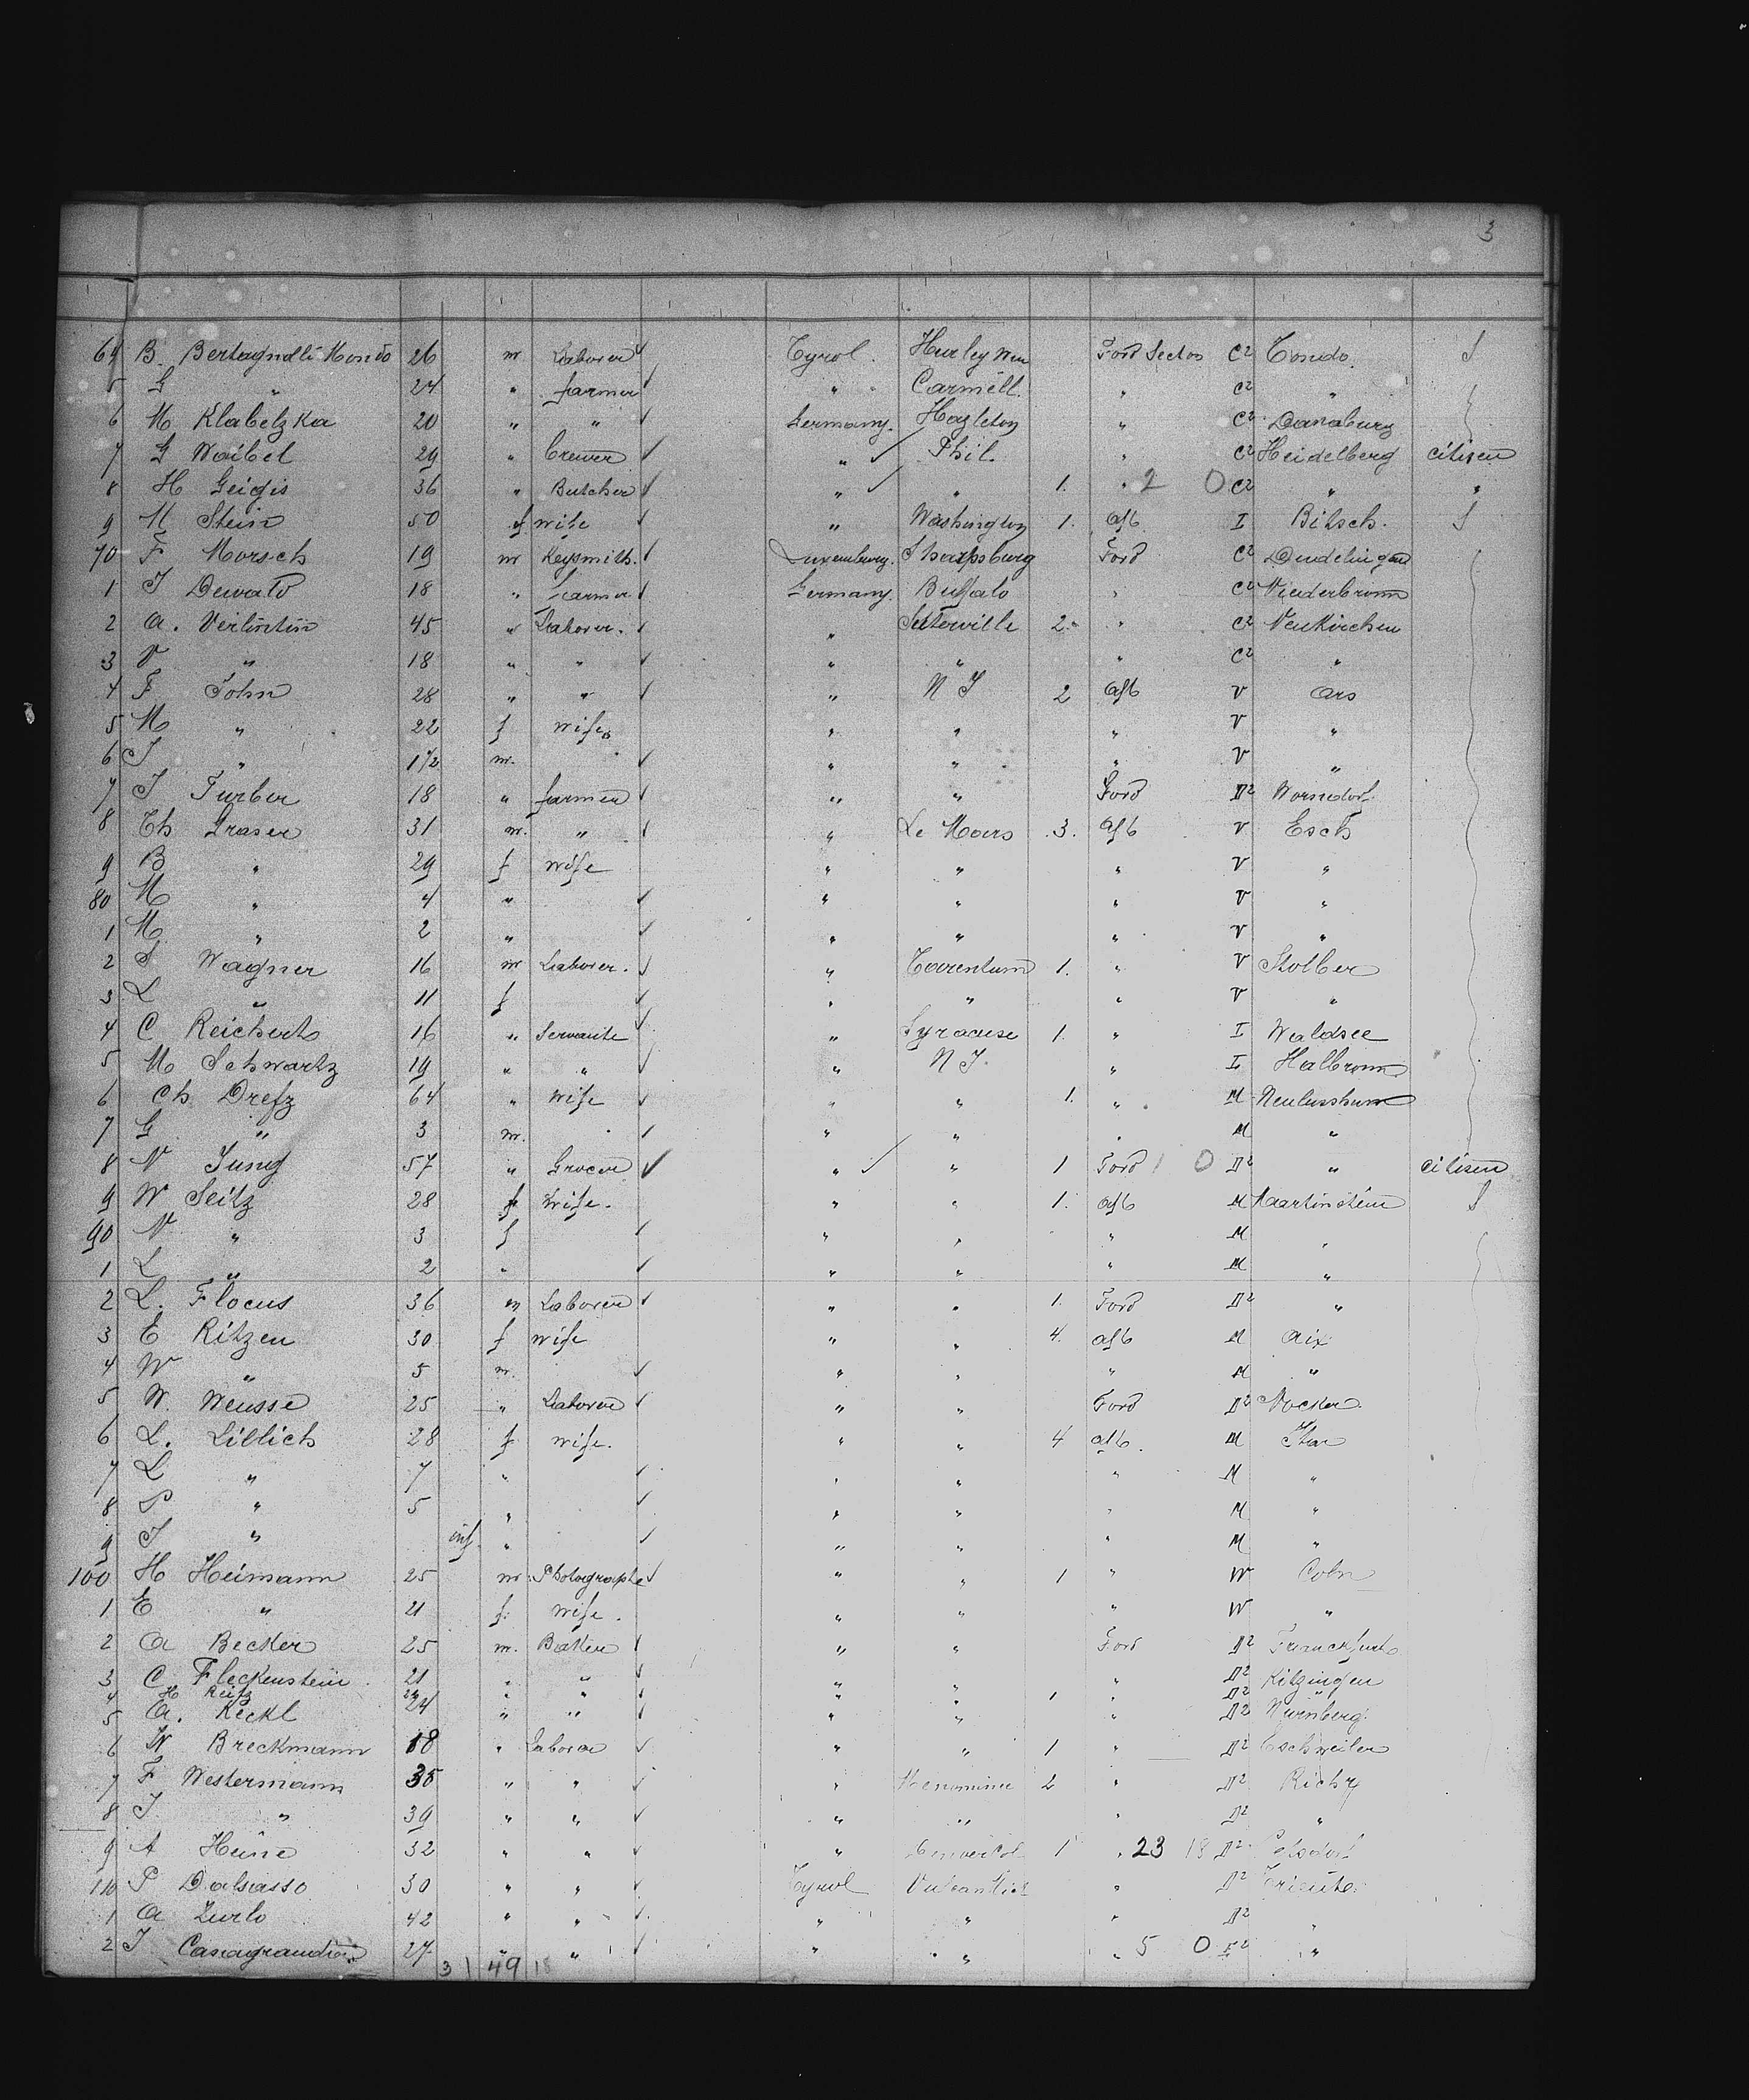 3
64 B. Bertagnolli Mondo 26 m Laborer ✓ Tyrol. Hurley Ford Sectos C2 Condo.
5 G " 24 " farmer ✓ " Carmell. " C2 "
6 M Klabelzka 20 " " ✓ Germany. Hazleton " C2 Danaburg
7 G Waibel 29 " Brewer ✓ " ✓ Phil. " C2 Heidelberg citisen
8 H Geigis 36 " Butcher ✓ " ✓ " 1. " 2 0 C2 " "
9 M Stein 50 f wife ✓ " Washington 1. aft I Bitsch.
70 F Morsch 19 m Keysmith. ✓ Luxemburg. Sharpsburg Ford C2
1 J Dewald 18 " Farmer ✓ Germany. Buffalo " C2 Niederbronn
2 A. Verlintin 45 " Laborer. ✓ " Suterville 2 " " C2 Neukirchen
3 V " 18 " " ✓ " " " C2 "
4 F John 28 " " ✓ " N J 2 aft V Ars
5 M " 22 f wife " " " V "
6 J " 1 1/2 m. ✓ " " " V "
7 J Furber 18 " farmer ✓ " " Ford D2
8 Th Graser 31 m. " ✓ " Le Moers 3. aft V Esch
9 B " 29 f wife " " " V "
80 M " 4 " ✓ " " " V "
1 M " 2 " ✓ " " " V "
2 S Wagner 16 m Laborer. ✓ " Tarentum 1. " V Stolber
3 L " 11 f ✓ " " " V "
4 C Reichert 16 " Servante ✓ " Syracuse 1. " I Waldsee
5 M Schwartz 19 " " ✓ " N J. " I Halbronn
6 Ch Drefz 64 " Wife ✓ " " 1. " M Neulussheim
7 G " 3 m. ✓ " " " M "
8 N Jung 57 " Grocer ✓ " ✓ " 1 Ford 1 0 D2 " citisen
9 W Seitz 28 f Wife. " " 1. aft M Maartinstein
90 N " 3 f ✓ " " " M "
1 L " 2 " ✓ " " " M "
2 L. Flocus 36 m Laborer ✓ " " 1. Ford D2 "
3 E Ritzen 30 f wife " " 4. aft M Aix
4 W " 5 m. ✓ " " " M "
5 W. Weusse 25 " Laborer ✓ " " Ford D2 Nocker.
6 L. Lillich 28 f wife. " " 4 aft. M
7 L " 7 " ✓ " " " M "
8 P " 5 " ✓ " " " M "
9 J " inf. " ✓ " " " M "
100 H Heimann 25 m. Photographe ✓ " " 1 " W Coln
1 E " 21 f. wife. " " " W "
2 A Becker 25 m. Baker ✓ " " Ford D2 Franckfurt
3 C Fleckenstein 21 " " ✓ " " " D2 Kitzingen
4 H Reitz 24 " " ✓ " " 1 " D2 "
5 A. Keckl 24 " " ✓ " " " D2 Nürnberg.
6 W Breckmann 18 " Laborer ✓ " " 1 " D2 Eschweiler
7 F Westermann 38 " " ✓ " Menominee 2 " D2
8 J " 39 " " ✓ " " " D2 "
9 A Heine 32 " " ✓ " 1 " 23 18 D2
110 P Dalsasso 30 " " ✓ Tyrol Vulcan Mich " D2 Triente.
1 A Zurlo 42 " " ✓ " " " D2 "
2 J Casagrandra 27 " " ✓ " " " 5 0 "
3 1 49 18